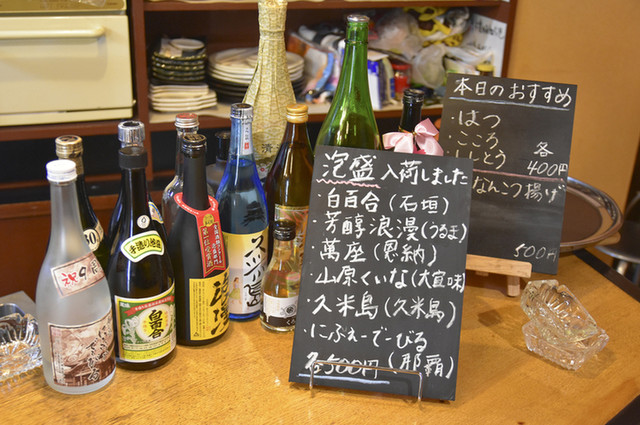 泡盛 入荷しました
・白百合(石垣)
・芳醇浪漫(うるま)
・萬座(恩納)
・山原くいな(大宜味)
・久米島(久米島)
・にふぇーでーびる
各500円(那覇)
本日のおすすめ
・はつ
・こころ
各
400円
なんこつ揚げ
500円
手造り泡盛
白百合
久米島
祝
30
清